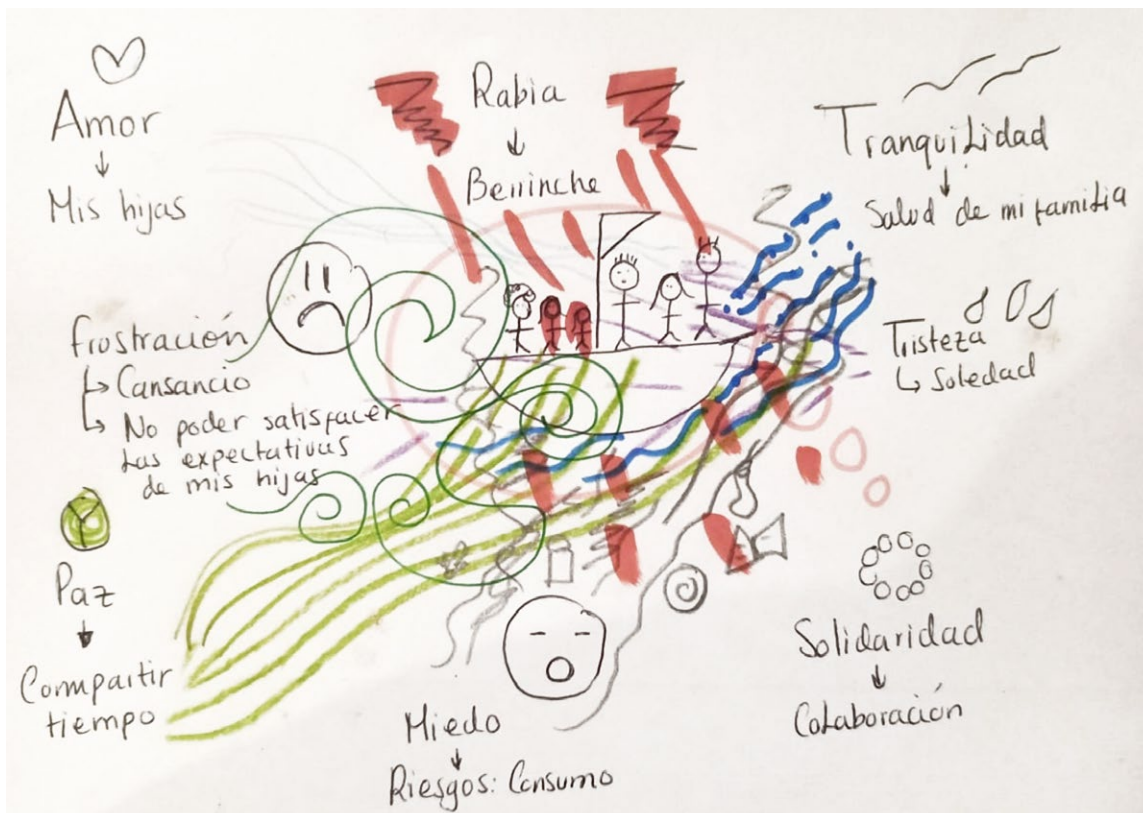 Amor
Mis hijas
Rabia
Berrinche
Tranquilidad
Salud de mi familia
frustración
Cansancio
No poder satisfacer
las expectativas
de mis hijas
Tristeza
Soledad
Paz
Compartir
tiempo
Miedo
Riesgos: Consumo
Solidaridad
Colaboración